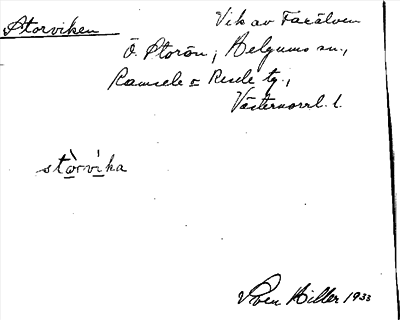 Storviken
Vik av Faxälven
Ö. Storön, Helgums sn.,
Ramsele o Resele tg.,
Västernorrl. l.
stòrvìka
Sven Hiller 1933